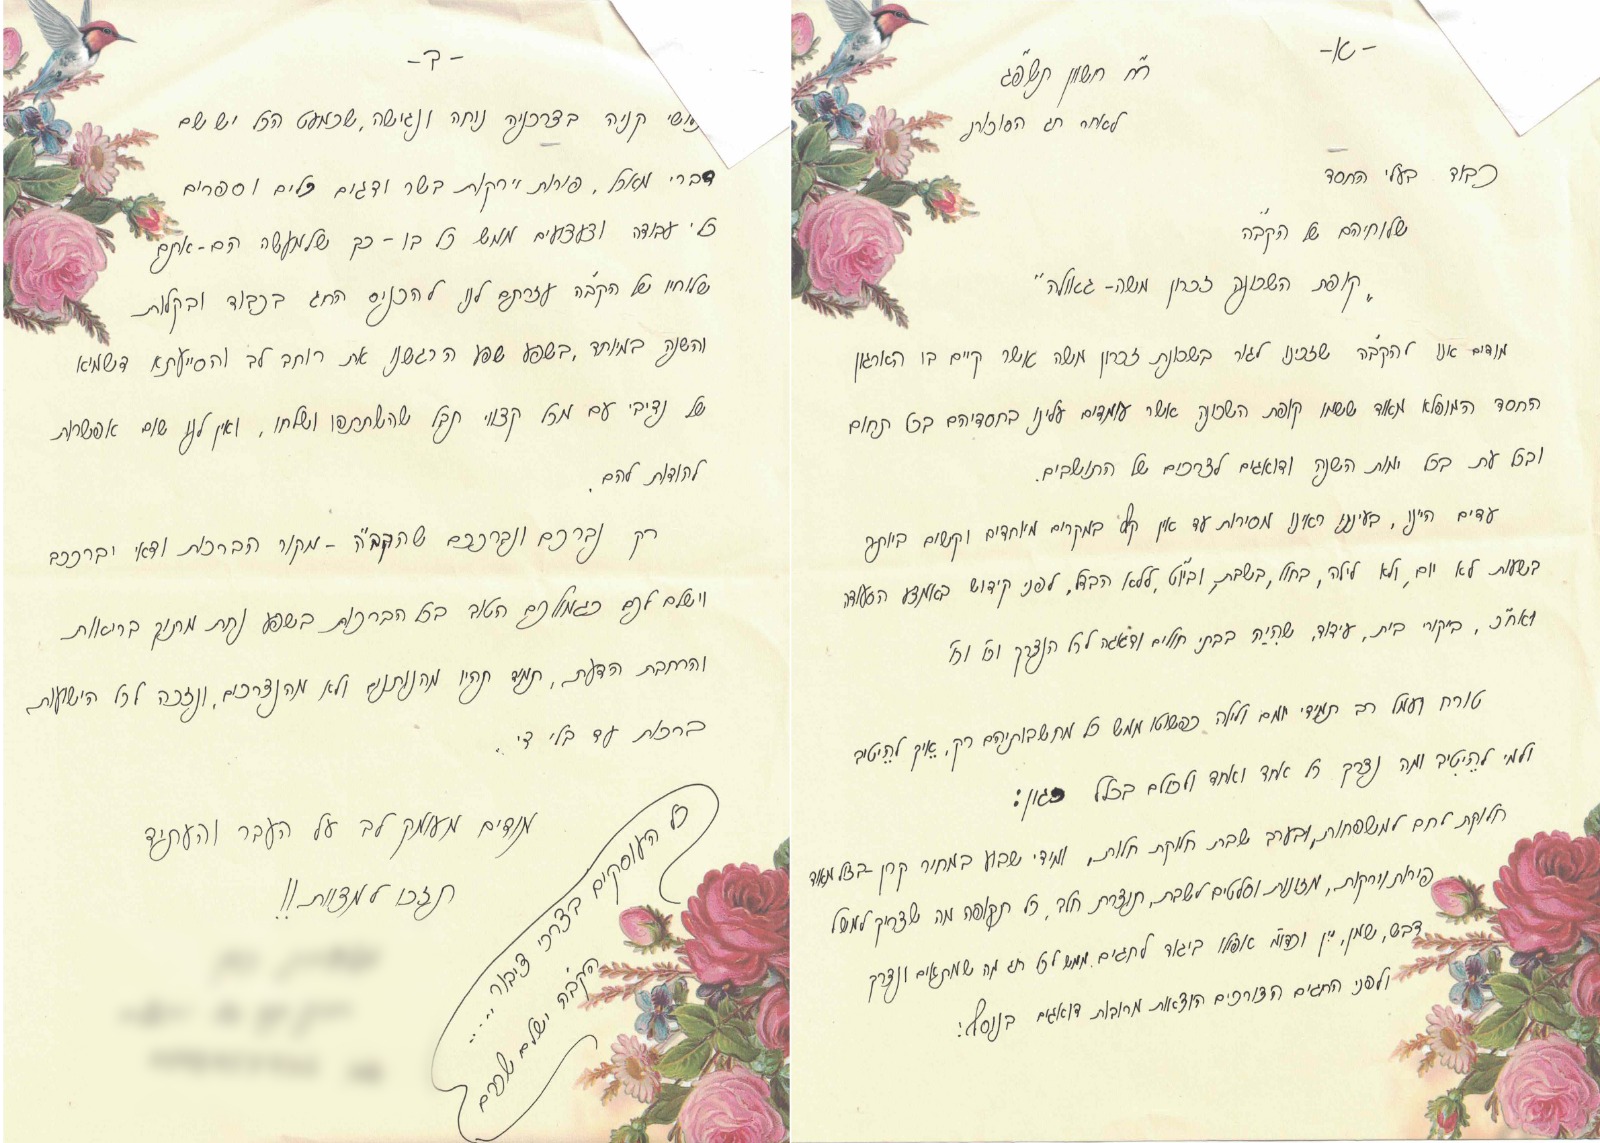 -א-
ר"ח חשון תשפ"ג
לאחר חג הסוכות
כבוד בעלי החסד
שלוחיהם של הקב"ה
"קופת השכונה זכרון משה - גאולה"
מודים אנו להקב"ה שזכינו לגור בשכונת זכרון משה אשר קיים בו הארגון
החסד המופלא מאוד ששמו קופת השכונה אשר עומדים עלינו בחסדיהם בכל תחום
ובכל עת בכל ימות השנה ודואגים לצרכים של התושבים.
עדים היינו, בעינינו ראינו מסירות עד אין קץ במקרים מיוחדים וקשים ביותר
בשעות לא יום, ולא לילה, בחול, בשבת, וביו"ט, ללא הבדל, לפני קידוש באמצע הסעודה
ואח"כ, ביקורי בית, עידוד, שהיה בבתי חולים ודאגה לכל הנצרך וכו' וכו'
טורח ועמל רב תמידי יומם ולילה כפשוטו ממש כל מחשבותיהם רק, איך להיטיב
ולמי להיטיב ומה נצרך כל אחד ואחד ולכולם בכלל כגון:
חלוקת לחם למשפחות, ובערב שבת חלוקת חלות, ומידי שבוע במחיר קרן - בזול מאוד
פירות וירקות, מזונות וסלטים לשבת, תוצרת חלב, כל תקופה מה שצריך למשל
דבש, שמן, יין וכדומ' אפילו ביגוד לחגים. ממש לכל חג מה שמתאים ונצרך
ולפני החגים הצורכים הוצאות מרובות דואגים בנוסף:
-ב-
קניה בצרכניה נוחה ונגישה, שכמעט הכל יש שם
דברי מאכל, פירות וירקות בשר ודגים כלים וספרים
כלי עבודה וצעצועים ממש כל בו - כך שלמעשה הם-אתם
שלוחיו של הקב"ה עזרתם לנו להכניס החג בכבוד ובקלות
והשנה במיוחד, בשפע שפע הרגשנו את רוחב לב והסייעתא דשמיא
של נדיבי עם מכל קצווי תבל שהשתתפו ושלחו, ואין לנו שום אפשרות
להודות להם.
רק נברכם ונברככם שהקב"ה - מקור הברכות ודאי יברככם
וישלם לכם כגמולכם הטוב בכל הברכות בשפע נחת מתוך בריאות
והרחבת הדעת, תמיד תהיו מהנותנים ולא מהנצרכים, ונזכה לכל הישועות,
ברכות עד בלי די.
מודים מעומק לב על העבר והעתיד
תזכו למצוות!!
כל העוסקים בצרכי ציבור .....
הקב"ה ישלם שכרם